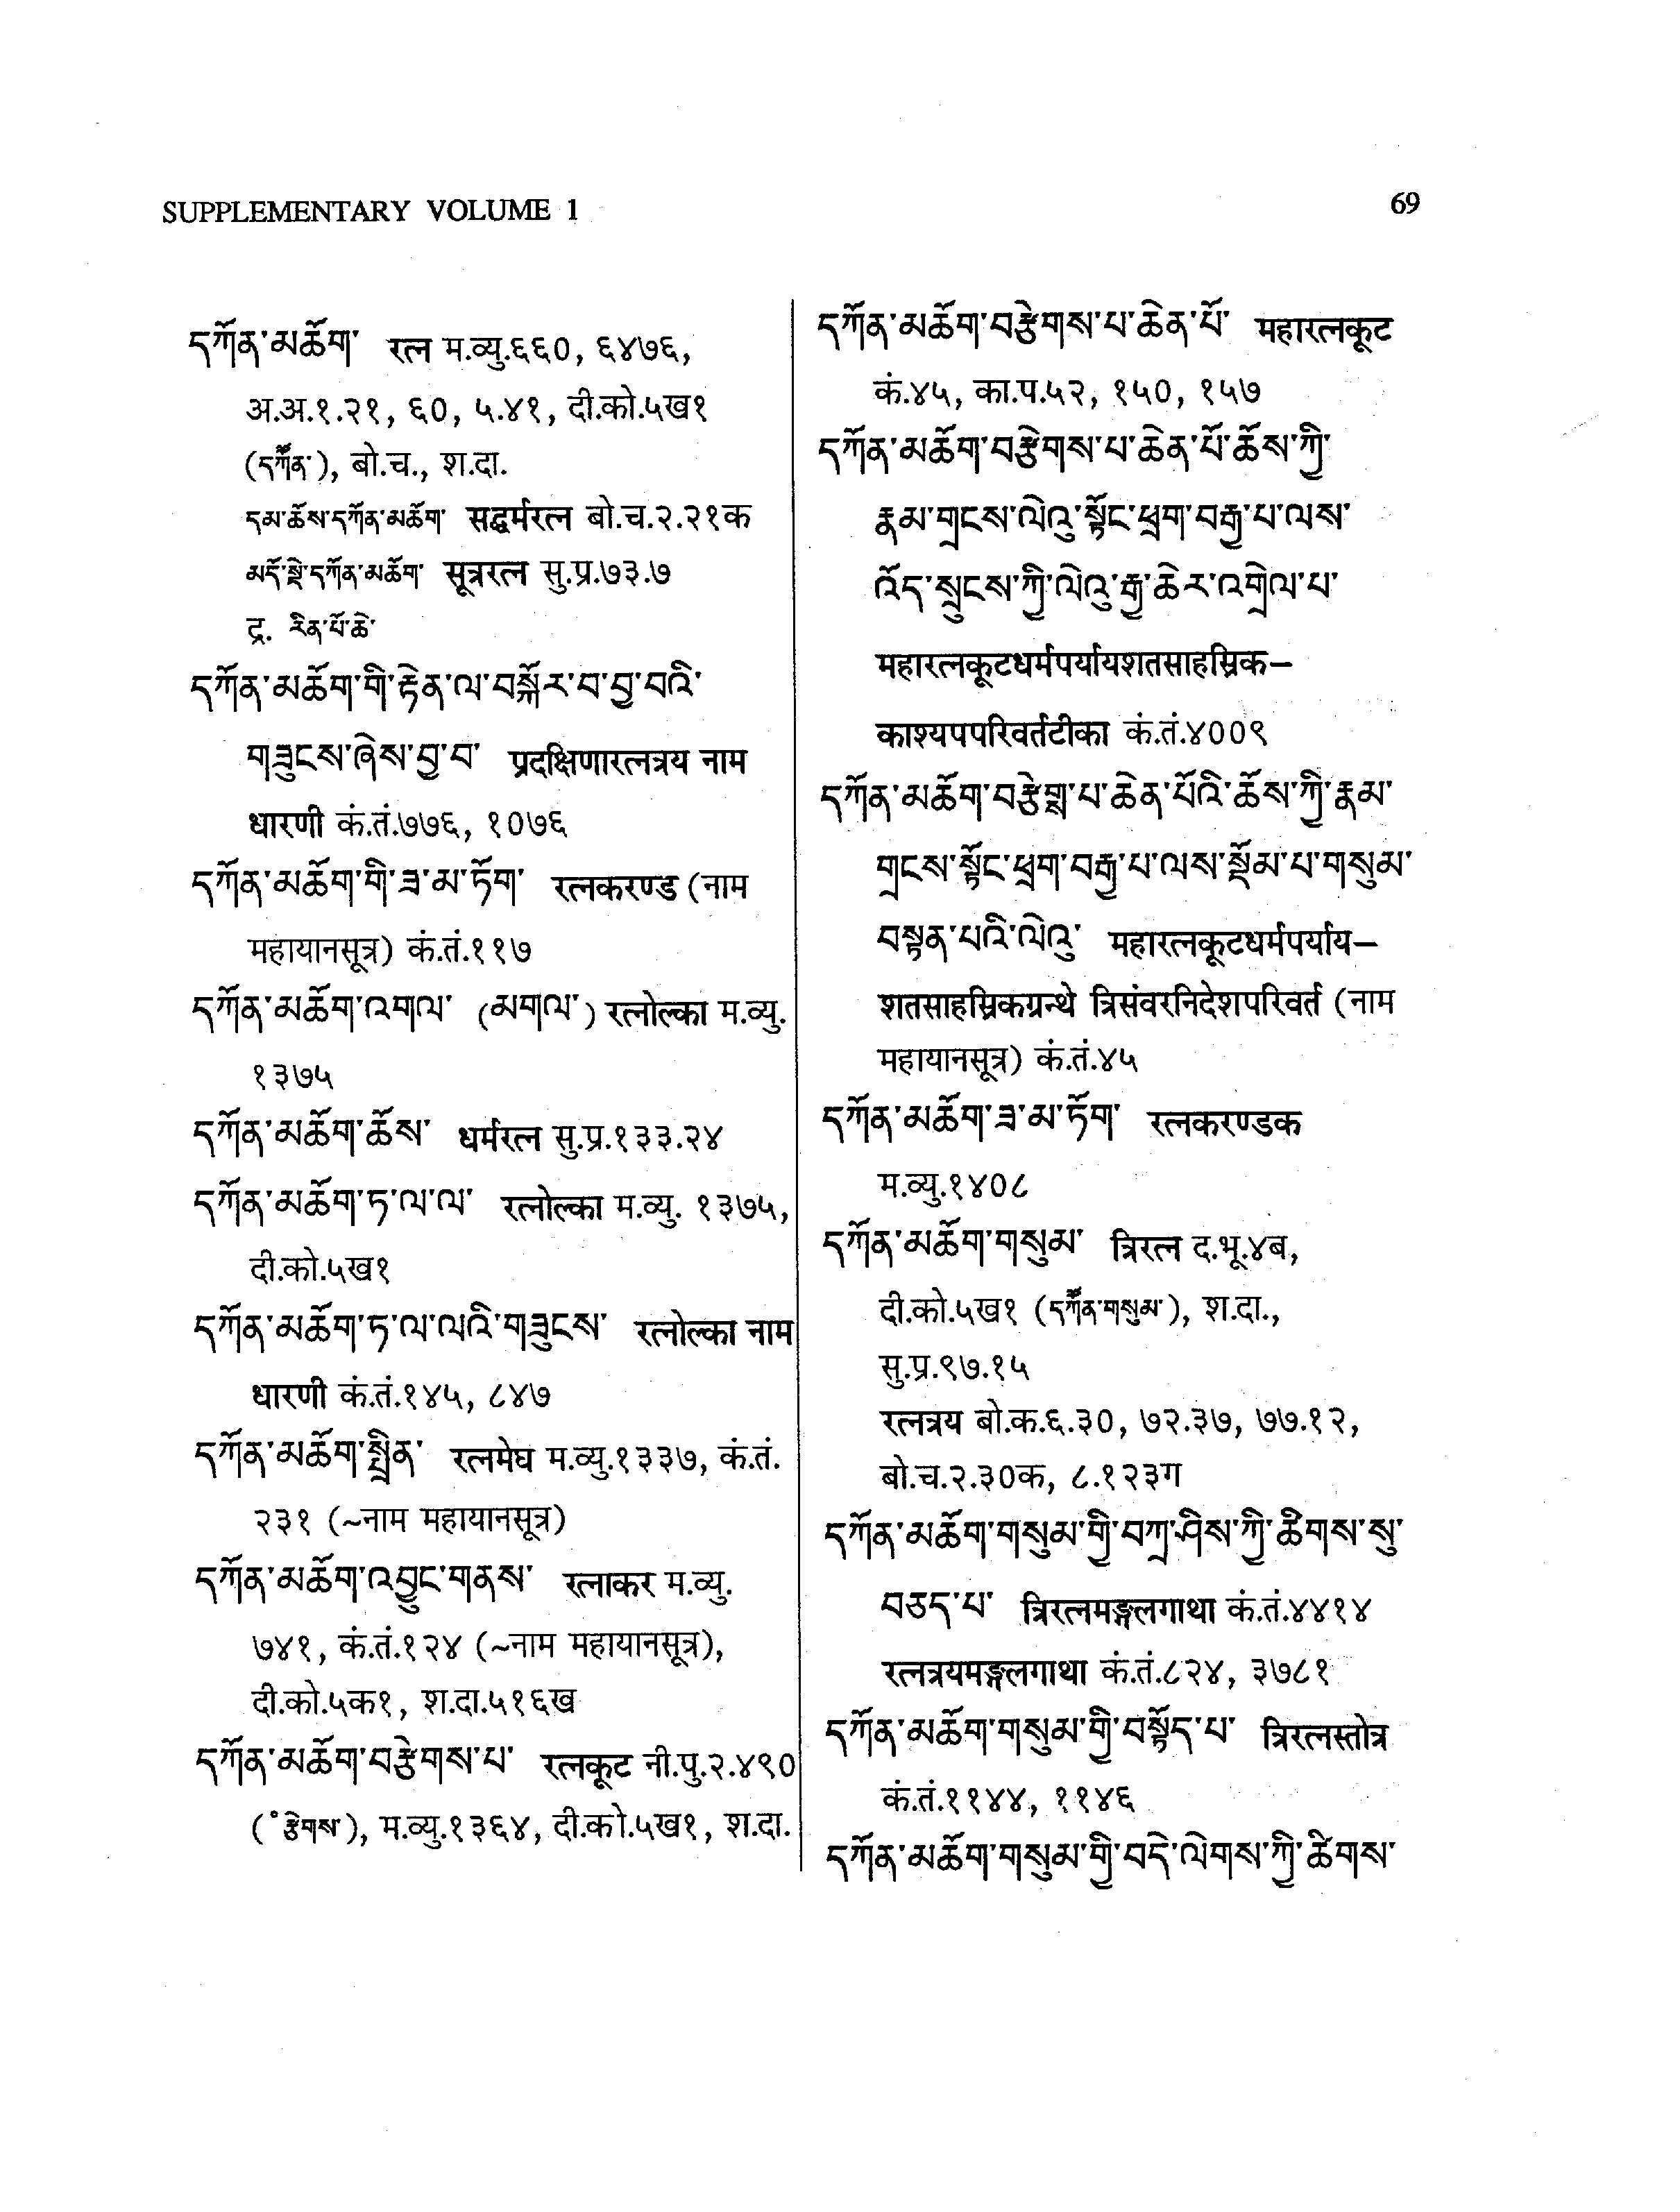 SUPPLEMENTARY VOLUME 1
69
དཀོན་མཆོག་ रत्न म.व्यु.६६०, ६४७६,
अ.अ.१.२१, ६०, ५.४१, दी.को.५ख१
(དཀོྃན་), बो.च., श.दा.
དམ་ཆོས་དཀོན་མཆོག་ सद्धर्मरत्न बो.च.२.२१क
མདོ་སྡེ་དཀོན་མཆོག་ सूत्ररत्न सु.प्र.७३.७
द्र. རིན་པོ་ཆེ་
དཀོན་མཆོག་གི་རྟེན་ལ་བསྐོར་བ་བྱ་བའི་
གཟུངས་ཞེས་བྱ་བ་ प्रदक्षिणारत्नत्रय नाम
धारणी कं.तं.७७६, १०७६
དཀོན་མཆོག་གི་ཟ་མ་ཏོག་ रत्नकरण्ड (नाम
महायानसूत्र) कं.तं.११७
དཀོན་མཆོག་འགལ་ (མགལ་) रत्नोल्का म.व्यु.
१३७५
དཀོན་མཆོག་ཆོས་ धर्मरत्न सु.प्र.१३३.२४
དཀོན་མཆོག་ཏ་ལ་ལ་ रत्नोल्का म.व्यु. १३७५,
दी.को.५ख१
དཀོན་མཆོག་ཏ་ལ་ལའི་གཟུངས་ रत्नोल्का नाम
धारणी कं.तं.१४५, ८४७
དཀོན་མཆོག་སྤྲིན་ रत्नमेघ म.व्यु.१३३७, कं.तं.
२३१ (~नाम महायानसूत्र)
དཀོན་མཆོག་འབྱུང་གནས་ रत्नाकर म.व्यु.
७४१, कं.तं.१२४ (~नाम महायानसूत्र),
दी.को.५क१, श.दा.५१६ख
དཀོན་མཆོག་བརྩེགས་པ་ रत्नकूट नी.पु.२.४९०
(°རྩེགས་), म.व्यु.१३६४, दी.को.५ख१, श.दा.
དཀོན་མཆོག་བརྩེགས་པ་ཆེན་པོ་ महारत्नकूट
कं.४५, का.प.५२, १५०, १५७
དཀོན་མཆོག་བརྩེགས་པ་ཆེན་པོ་ཆོས་ཀྱི་
རྣམ་གྲངས་ལེའུ་སྟོང་ཕྲག་བརྒྱ་པ་ལས་
འོད་སྲུངས་ཀྱི་ལེའུ་རྒྱ་ཆེར་འགྲེལ་པ་
महारत्नकूटधर्मपर्यायशतसाहस्रिक–
काश्यपपरिवर्तटीका कं.तं.४००९
དཀོན་མཆོག་བརྩེགྶ་པ་ཆེན་པོའི་ཆོས་ཀྱི་རྣམ་
གྲངས་སྟོང་ཕྲག་བརྒྱ་པ་ལས་སྡོམ་པ་གསུམ་
བསྟན་པའི་ལེའུ་ महारत्नकूटधर्मपर्याय–
शतसाहस्रिकग्रन्थे त्रिसंवरनिदेशपरिवर्त (नाम
महायानसूत्र) कं.तं.४५
དཀོན་མཆོག་ཟ་མ་ཏོག་ रत्नकरण्डक
म.व्यु.१४०८
དཀོན་མཆོག་གསུམ་ त्रिरत्न द.भू.४ब,
दी.को.५ख१ (དཀོྃན་གསུམ་), श.दा.,
सु.प्र.९७.१५
रत्नत्रय बो.क.६.३०, ७२.३७, ७७.१२,
बो.च.२.३०क, ८.१२३ग
དཀོན་མཆོག་གསུམ་གྱི་བཀྲ་ཤིས་ཀྱི་ཚིགས་སུ་
བཅད་པ་ त्रिरत्नमङ्गलगाथा कं.तं.४४१४
रत्नत्रयमङ्गलगाथा कं.तं.८२४, ३७८१
དཀོན་མཆོག་གསུམ་གྱི་བསྟོད་པ་ त्रिरत्नस्तोत्र
कं.तं.११४४, ११४६
དཀོན་མཆོག་གསུམ་གྱི་བདེ་ལེགས་ཀྱི་ཚིགས་